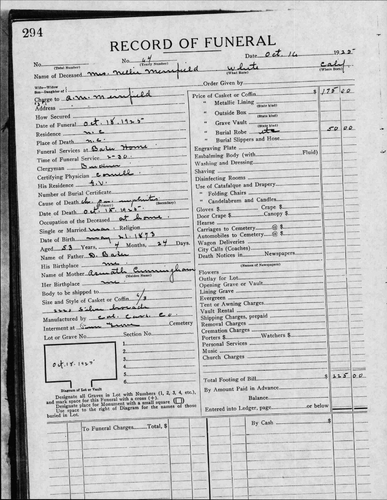 294
RECORD OF FUNERAL
No. No. 64 Date Oct. 16 1925
(Total Number) (Yearly Number)
Name of Deceased Mrs. Nellie Merrifield White
(What Race) (Where Born)
Wife—Widow
Son—Daughter of Order Given by
Charge to A.M. Merrifield Price of Casket or Coffin $ 175 00
Address " Metallic Lining
How Secured " Outside Box
Date of Funeral Oct. 18, 1925 " Grave Vault
(State Kind)
Residence " Burial Robe 50 00
Place of Death " Burial Slippers and Hose
Funeral Services at Home Engraving Plate
Time of Funeral Service 2-30 Embalming Body (with Fluid)
Clergyman Washing and Dressing
Certifying Physician Shaving
His Residence G.V. Disinfecting Rooms
Number of Burial Certificate Use of Catafalque and Drapery
Cause of Death " Folding Chairs
Date of Death Oct. 15, 1925 " Candelabrum and Candles
Occupation of the Deceased at home Gloves $ Crape $
Single or Married Religion Door Crape $ Canopy $
Date of Birth May 21, 1873 Hearse
Aged Years, 4 Months, 24 Days Carriages to Cemetery @ $
Name of Father Automobiles to Cemetery @ $
His Birthplace Wagon Deliveries
Name of Mother Cunningham City Calls (Coaches)
Her " Death Notices in Newspapers
Body to be shipped to Flowers
Size and Style of Casket or Coffin 6/3 Outlay for Lot
Silver Lining Grave
Manufactured by Co. Evergreen
Interment at Cemetery Opening Grave or Vault
Lot or Grave No. Section No. Tent or Awning Charges
Vault Rental
Shipping Charges, prepaid
Removal Charges
Cremation Charges
Porters $ Watchers $
Personal Services
Music
Church Charges
1
2
3
4
5
6
Oct. 18, 1925
Diagram of Lot or Vault
Total Footing of Bill $ 225 00
By Amount Paid in Advance
Balance
Entered into Ledger, page or below
Designate all Graves in Lot with Numbers (1, 2, 3, 4, etc.)
and mark space for this Funeral with a cross (+).
Designate place for Monument with a small square
Use space to right of Diagram for the names of those
buried in Lot.
To Funeral Charges Total, $ By Cash $